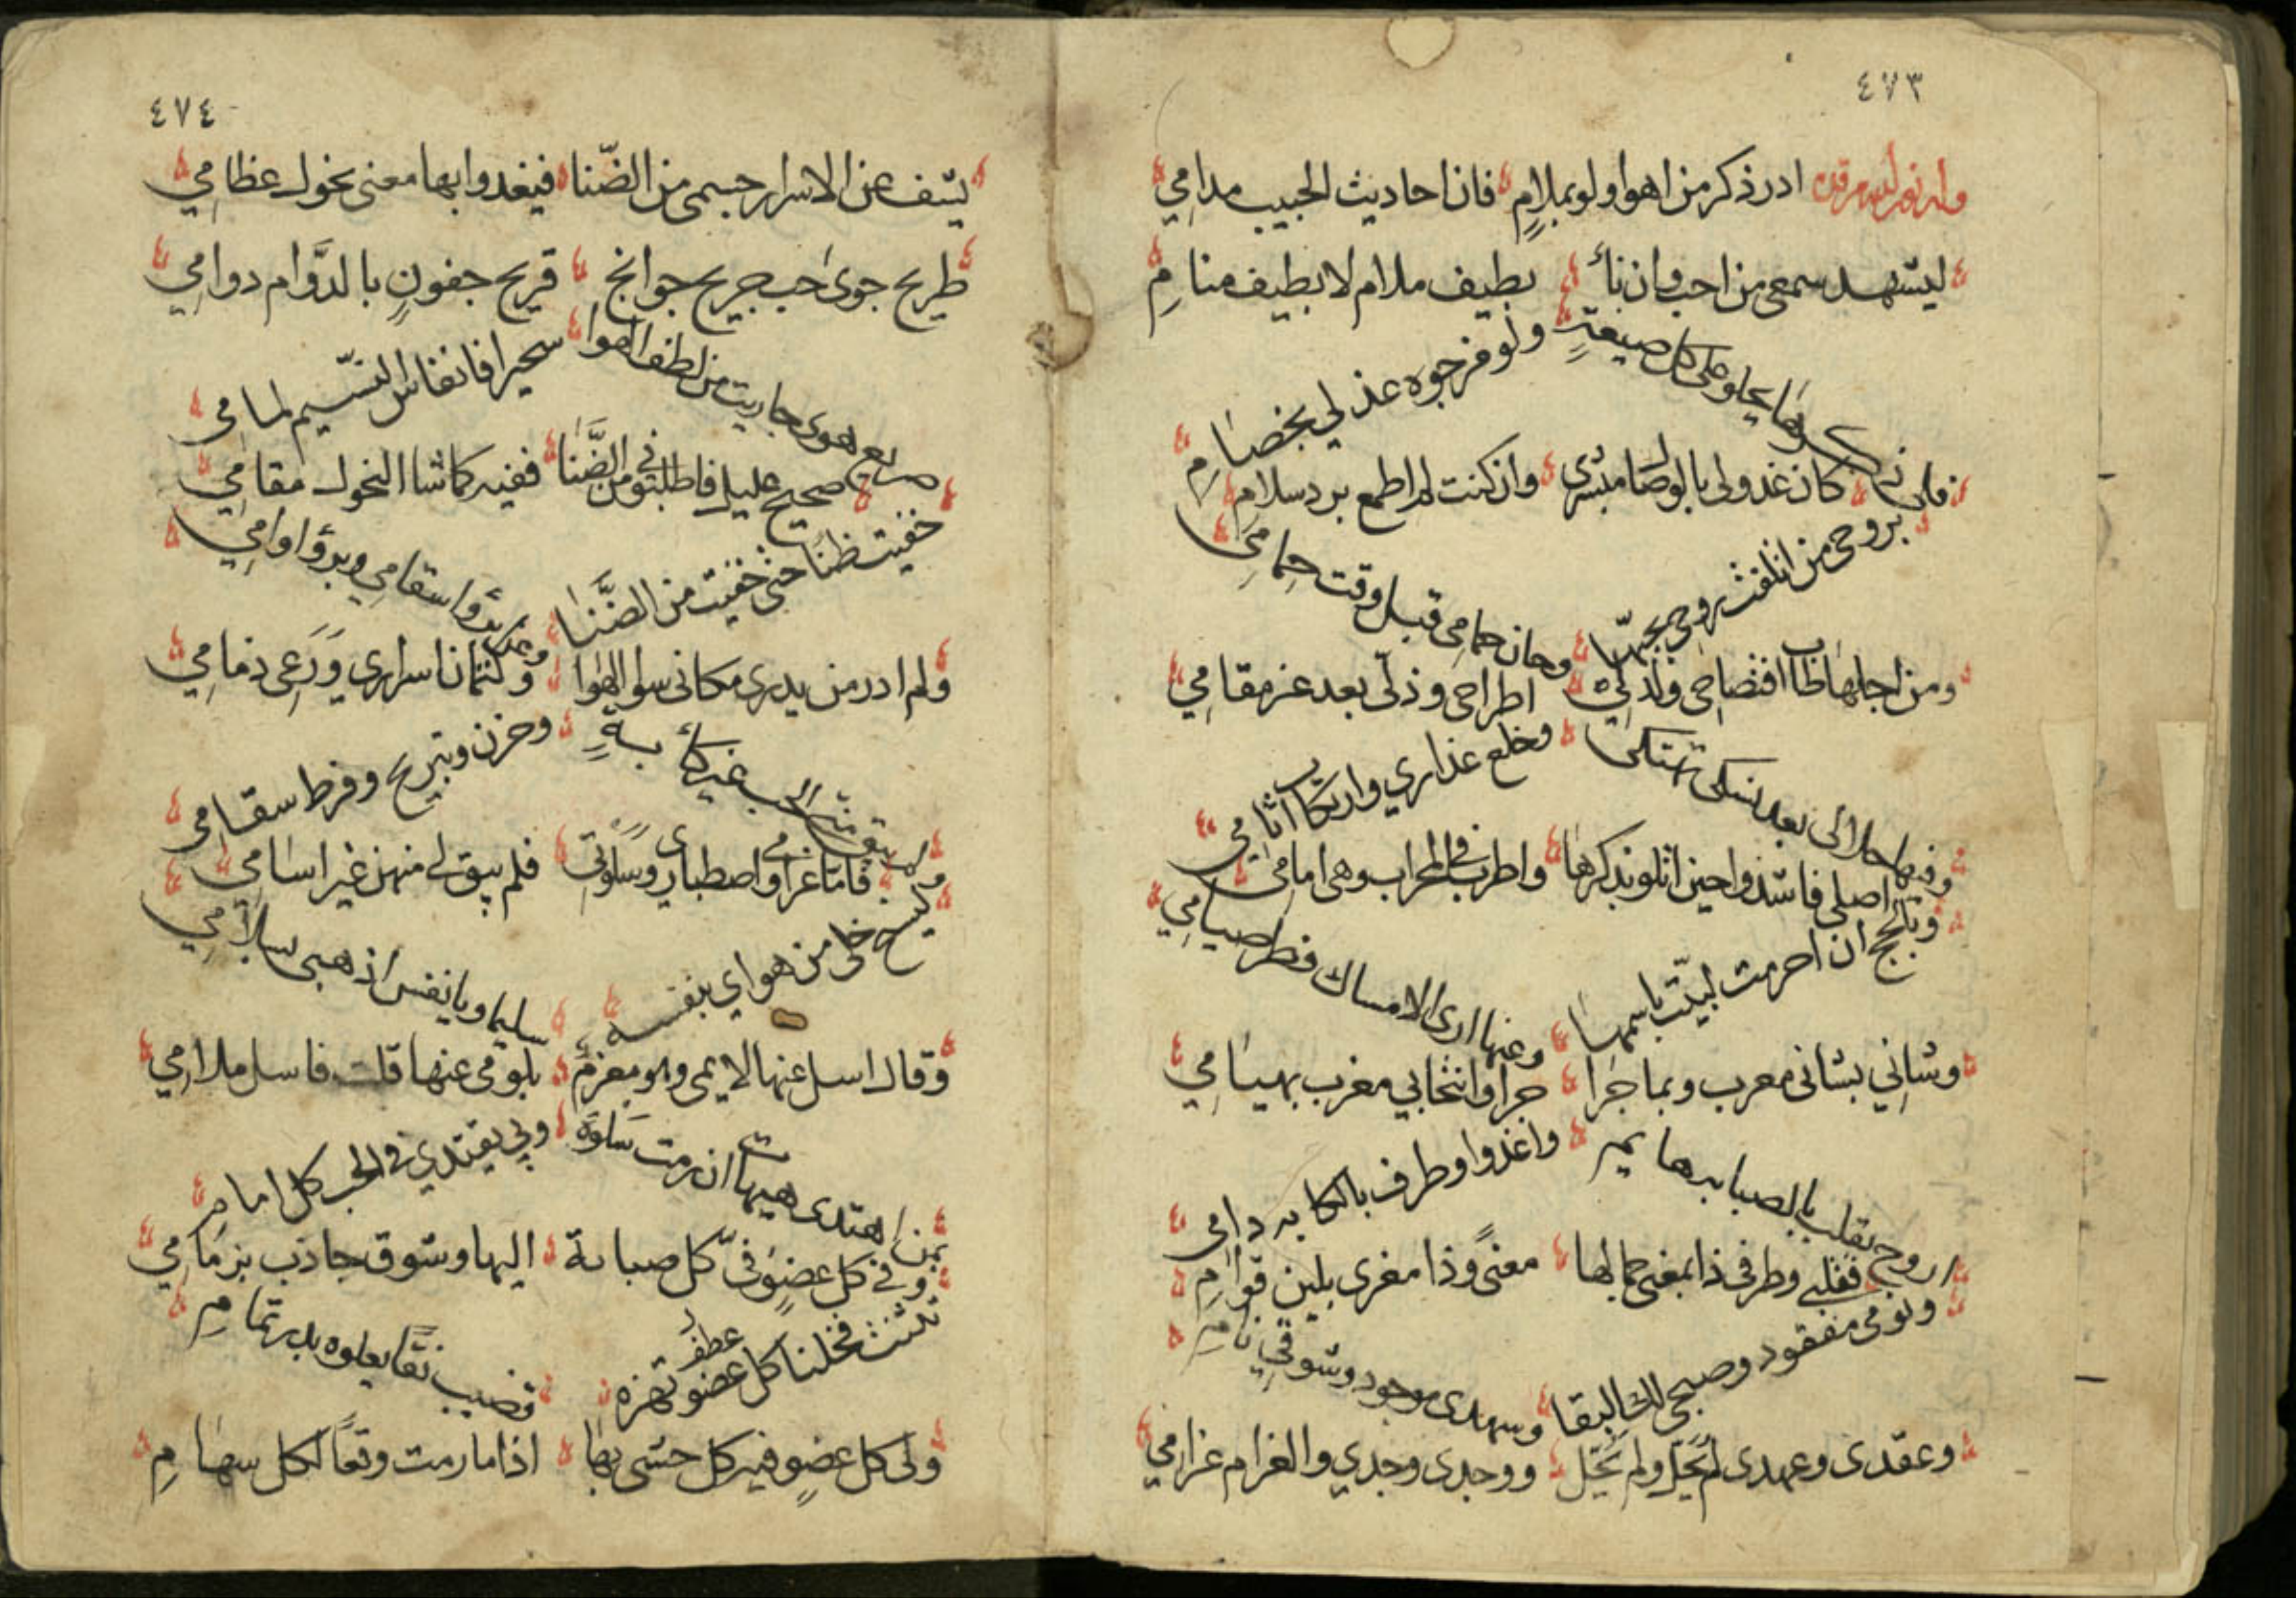 ٤٧٣
وله نور الله مرقده ادر ذكر من اهوا ولو بملامٍ فان احاديث الحبيب مدامِي
ليشهد سمعي من احب وان نأئ بطيف ملام لا بطيف منامِ
فلي ذكرها يحلو على كل صيغةٍ ولو مزجوه عذلي بخصامِ
كان عذولي بالوصال مبشري وان كنت لم اطمع برد سلام
بروحي من اتلفت روحي بحبها وحان حمامي قبل وقت حمامِي
ومن اجلها طاب افتضاحي ولذ لي اطراحي وذلي بعد عز مقامِي
وفيها حلا لي بعد نسكي تهتكي وخلع عذاري وارتكاب اثامِي
اصلي فاشدوا حين اتلو بذكرها واطرب في المحراب وهي امامي
وبالحج ان احرمت لبيّت باسمها وعنها ارى الامساك فطر صيامِي
وشاني بشاني معرب وبما جرا جرا وانتحابي معرب بهيامِي
اروح بقلب بالصبابه هايمِ واغدوا وطرف بالكابه دامي
فقلبي وطرفي ذا بمغنى جمالها معنىً وذا مغرى بلين قوامِ
ونومي مفقود وصبحي لك البقا وسهدي موجود وشوقي نامِ
وعقدي وعهدي لم يحل ولم يحل ووجدي وجدي والغرام غرامي
٤٧٤
يشف عن الاسرار جسمي من الضّنا فيغدوا بها معنى نحول عظامِي
طريح جوى حب جريح جوانح قريح جفونٍ بالدَّوام دوامِي
صريع هوى جاريت من لطف الهوا سحيرا فانفاس النسّيم لمامي
صحيح عليل فاطلبوني من الضَّنا ففيه كما شا النحول مقامِي
خفيت ظنا حتى خفيت من الضَّنا وعن برؤ اسقامي وبرؤ اوامِي
ولم ادر من يدري مكاني سوا الهوا وكتمان اسراري وَرَعي ذمامِي
ولم يبق مني الحب غير كأبةٍ وحزن وتبريح وفرط سقامي
فاما غرامي واصطباري وسلوتي فلم يبق لي منهن غير اسامِي
لينج خلي من هواي بنفسه سليما ويا نفس اذهبي بسلامِي
وقال اسل عنها لايمي وهو مغرمٌ بلومي عنها قلت فاسل ملامِي
بمن اهتدي هيهات ان رمت سَلوة وبي يقتدي في الحب كل امامِ
وفي كل عضوٍ فيَّ كل صبابة اليها وشوق جاذب بزمامِي
تثنت فخلنا كل عضو عطف تهزه قضيب نقًا يعلوه بدر تمامِ
ولي كل عضوٍ فيه كل حشى بها اذا ما رمت وقعًا لكل سهامِ